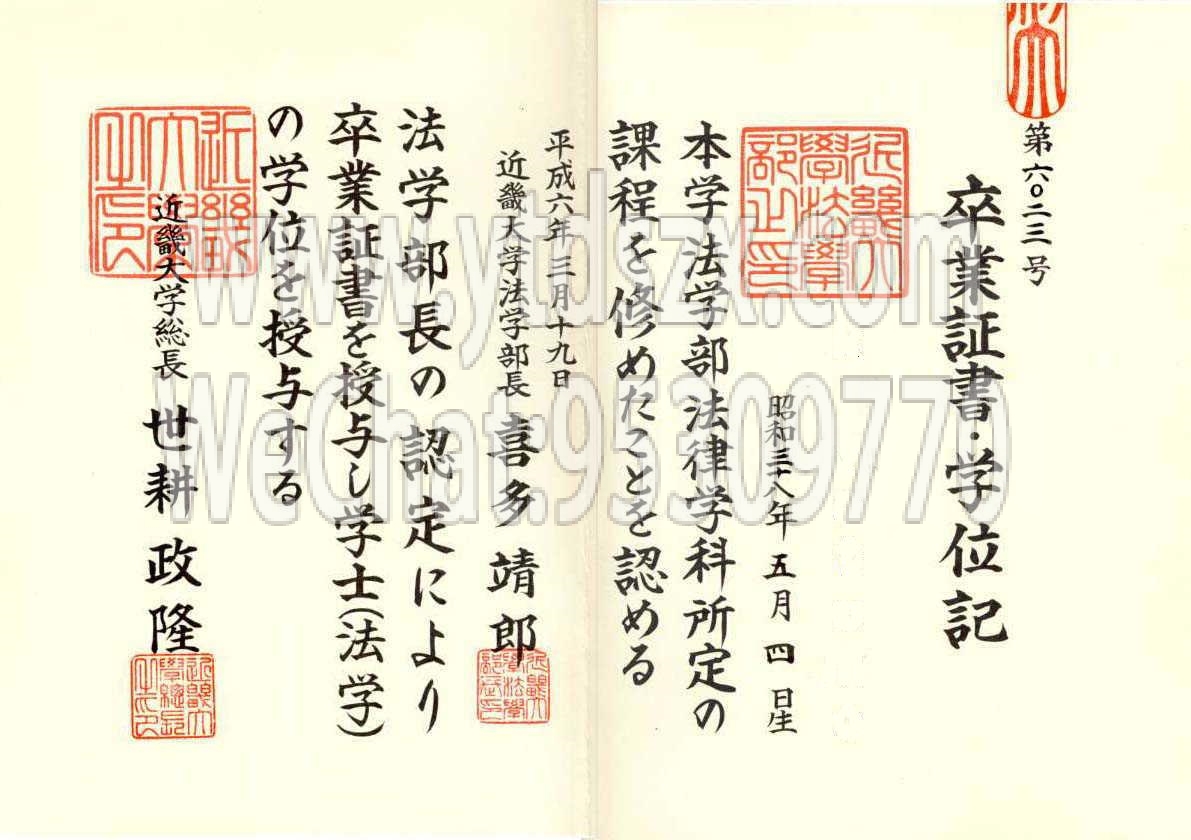 第六〇二三号
卒業証書・学位記
昭和三十八年五月四日生
本学法学部法律学科所定の
課程を修めたことを認める
平成六年三月十九日
近畿大学法学部長 喜多靖郎
法学部長の認定により
卒業証書を授与し学士(法学)
の学位を授与する
近畿大学総長 世耕政隆
www.ytdszx.com
WeChat:95309770